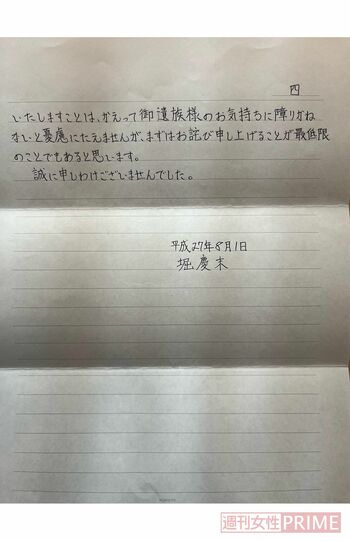 四
いたしますことは、かえって御遺族様のお気持ちに障りかね
ないと憂慮にたえませんが、まずはお詫び申し上げることが最低限
のことでもあると思います。
誠に申しわけございませんでした。
平成27年8月1日
堀慶末
週刊女性PRIME